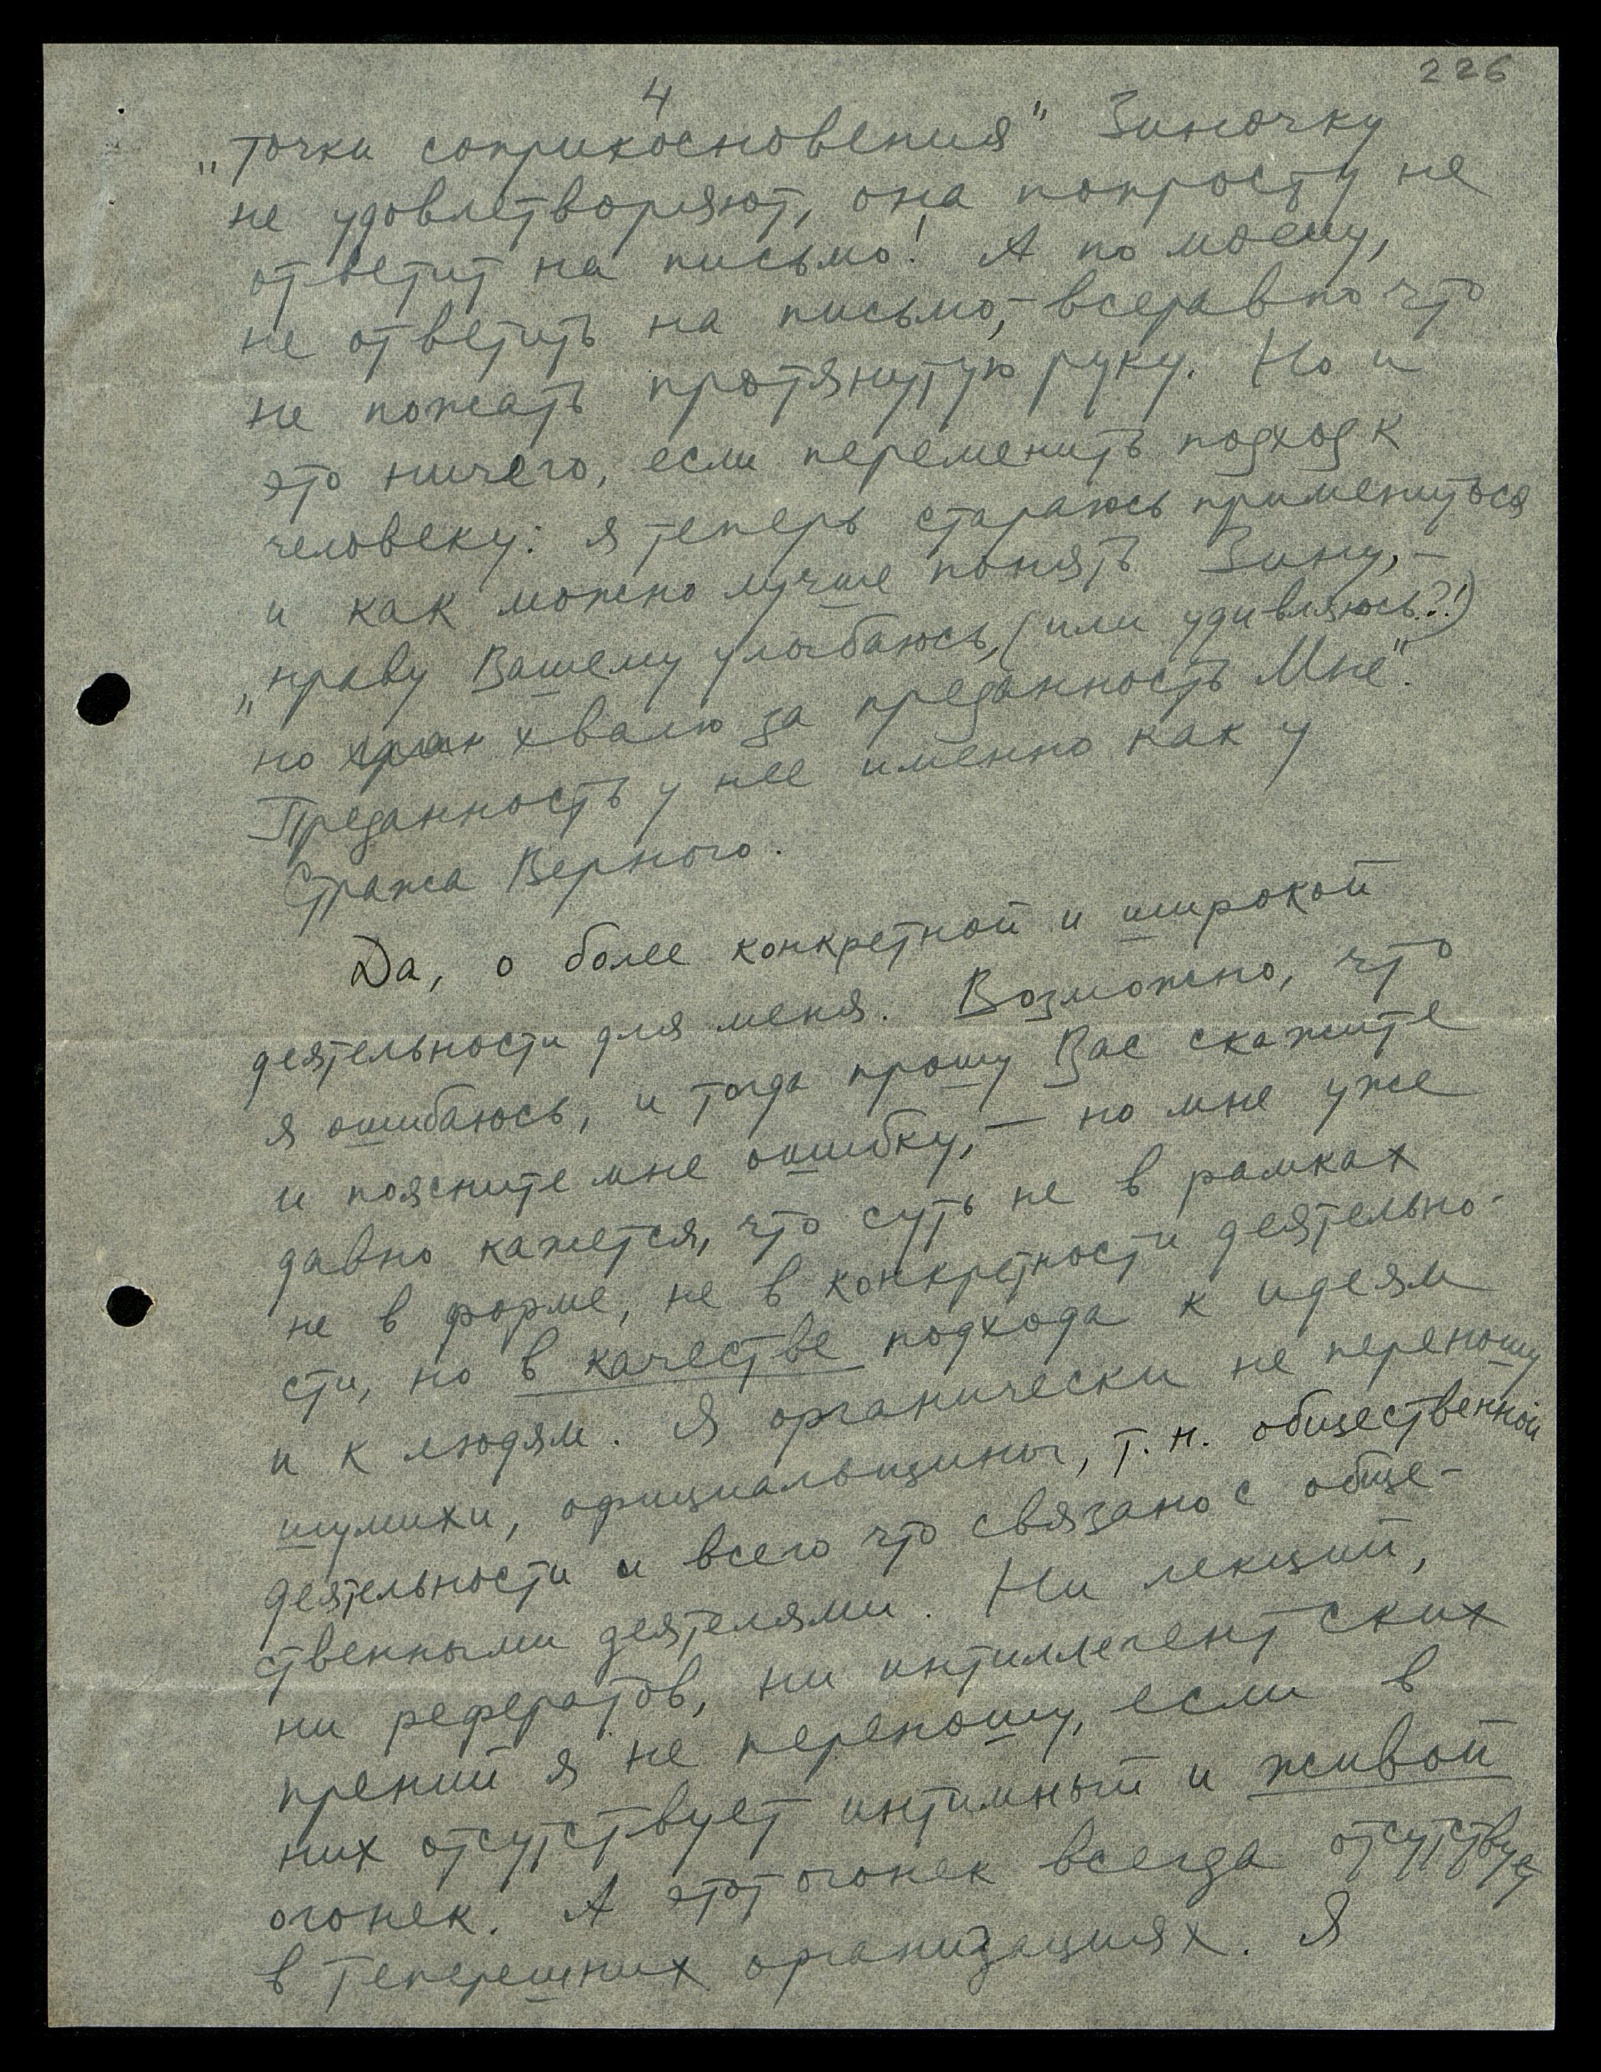 226
4
„точки соприкосновения" Зиночку
не удовлетворяют, она попросту не
ответит на письмо! А по моему,
не ответить на письмо, – всеравно что
не пожать протянутую руку. Но и
это ничего, если переменить подход к
человеку: я теперь стараюсь примениться
и как можно лучше понять Зину, –
„нраву Вашему улыбаюсь, (или удивляюсь?!)
но хвалю за преданность Мне".
Преданность у нее именно как у
Стража Верного.
Да, о более конкретной и широкой
деятельности для меня. Возможно, что
я ошибаюсь, и тогда прошу Вас скажите
и поясните мне ошибку, – но мне уже
давно кажется, что суть не в рамках
не в форме, не в конкретности деятельно-
сти, но в качестве подхода к идеям
и к людям. Я органически не переношу
шумихи, официальщины, т.н. общественной
деятельности и всего что связано с обще-
ственными деятелями. Ни лекций,
ни рефератов, ни интиллегентских
прений я не переношу, если в
них отсутствует интимный и живой
огонек. А этот огонек всегда отсутствует
в теперешних организациях. Я